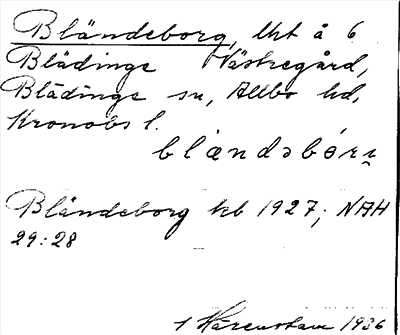 Bländeborg, lht å 6
Blädinge Västregård,
Blädinge sn, Allbo hd,
Kronobs l.
Bländeborg kb 1927; NAH
29:28
1936